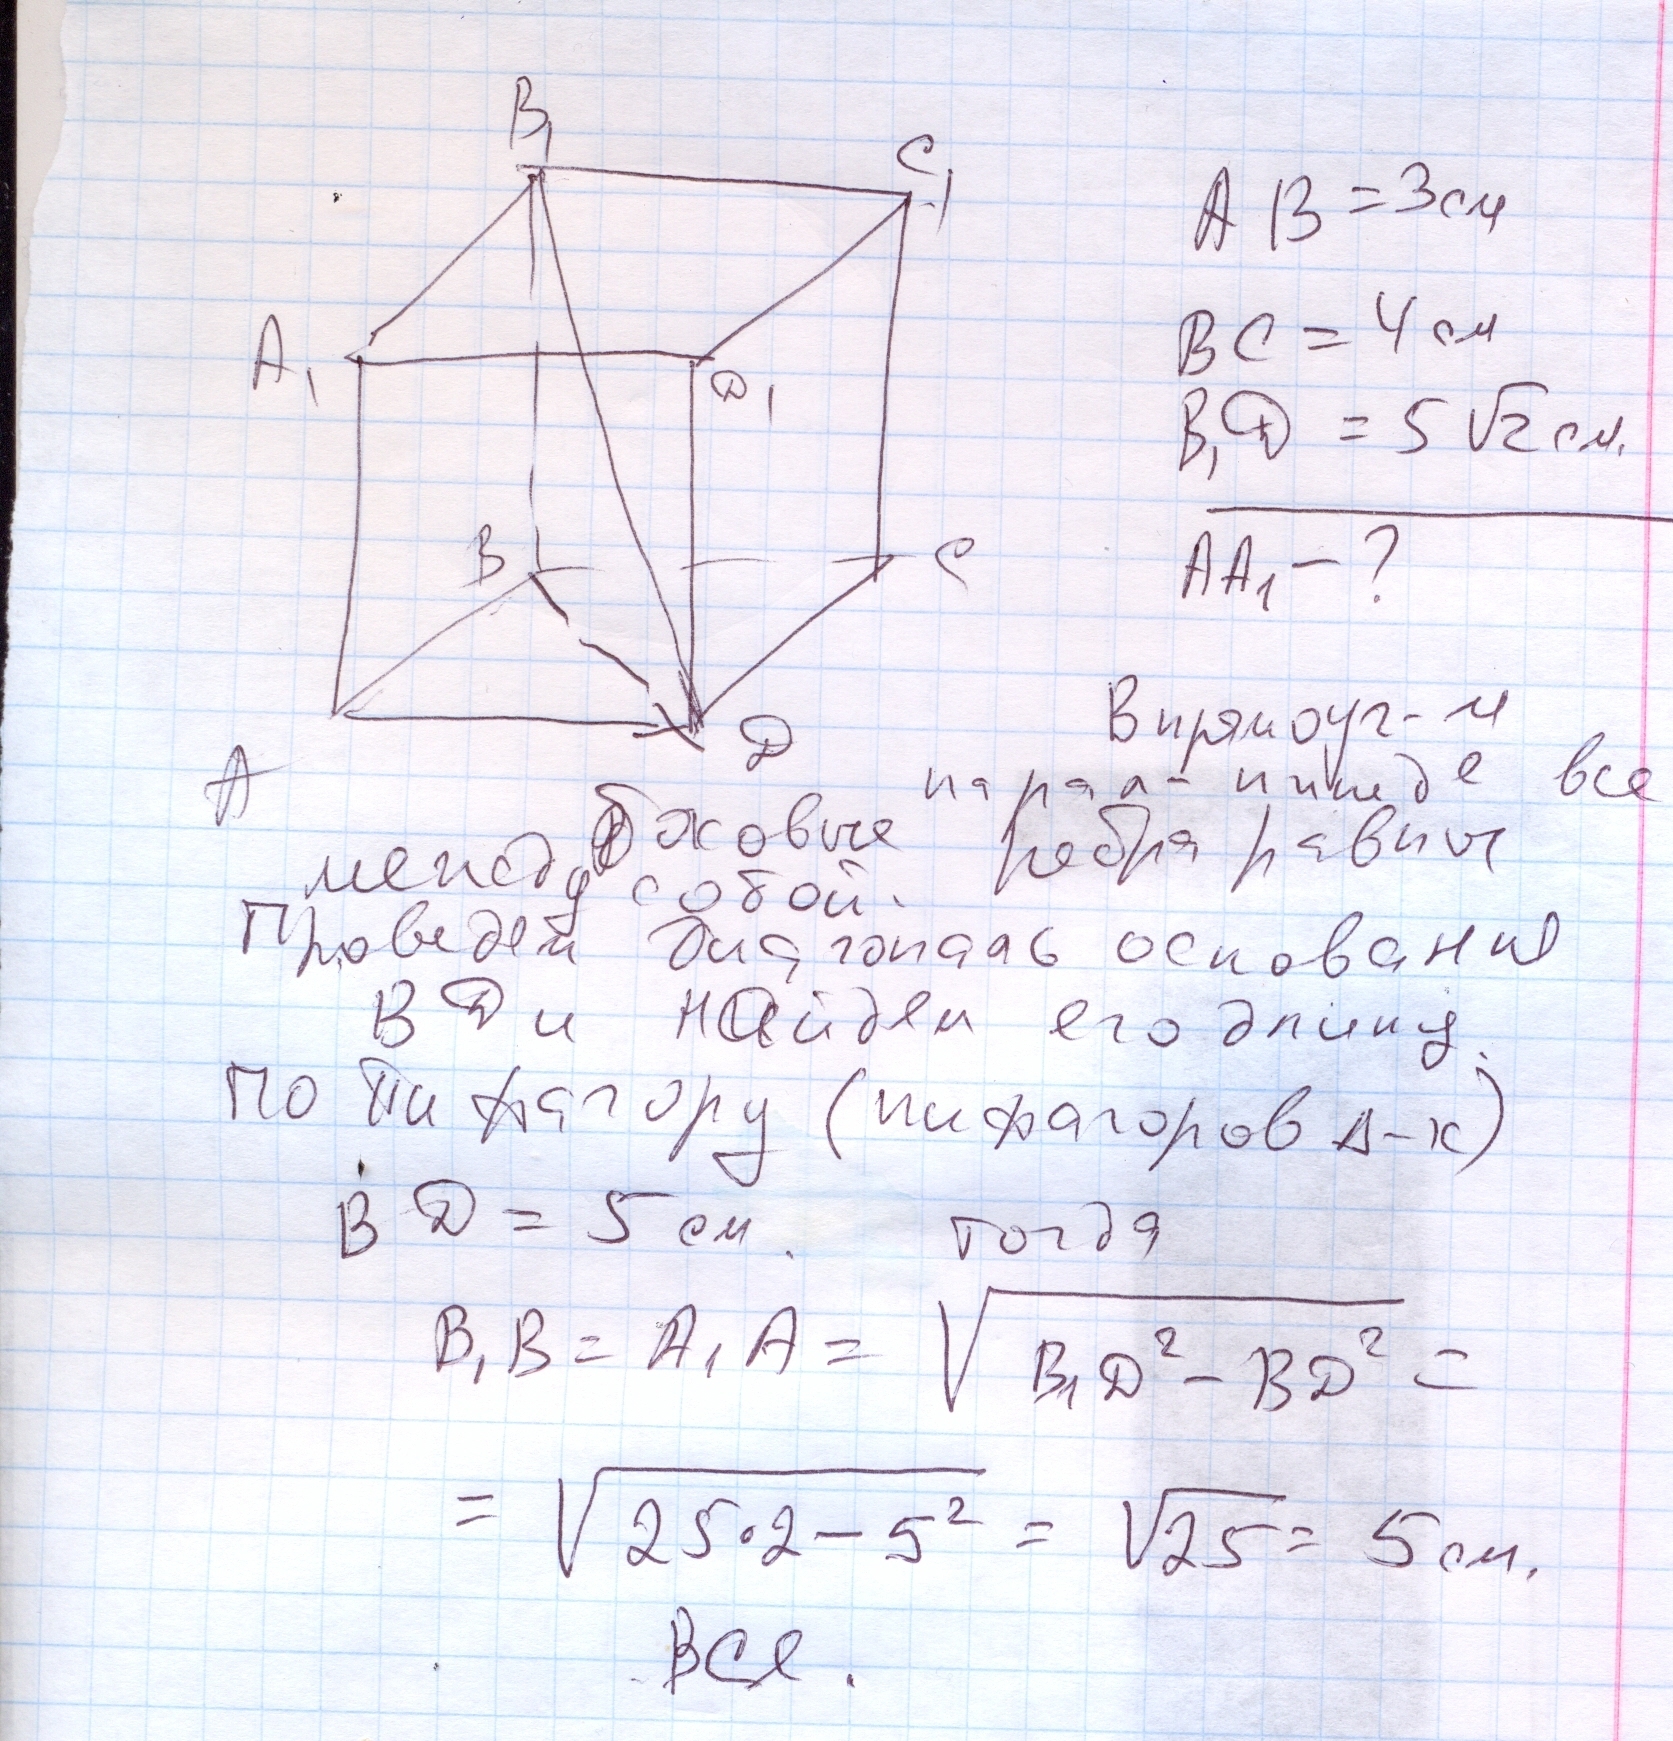 B₁
C₁
A₁
D₁
B
C
A
D
AB = 3 см
BC = 4 см
B₁D = 5√2 см.
AA₁ - ?
В прямоуг-м
парал-пипеде все
боковые ребра равны
между собой.
Проведем диагональ основания
BD и найдем его длину.
По Пифагору (пифагоров Δ-к)
BD = 5 см. тогда
B₁B = A₁A = √(B₁D² - BD²) =
= √(25·2 - 5²) = √25 = 5 см.
Все.